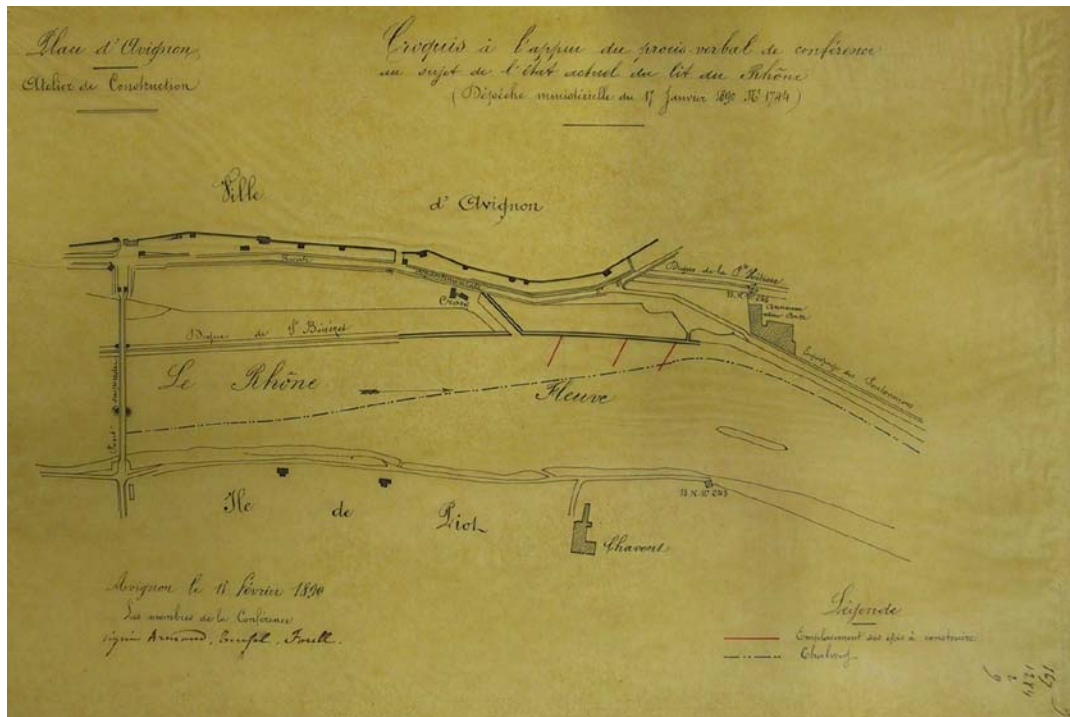 Place d'Avignon
Atelier de Construction
Croquis à l'appui du procès-verbal de conférence
au sujet de l'état actuel du lit du Rhône
(Dépêche ministérielle du 17 Janvier 1890 N° 1744)
Ville d'Avignon
Digue de la
B.K. N° 246
Route
Crose
Digue de St Bénézet
Le Rhône
Fleuve
Pont suspendu
B.K. N° 245
Ile de Piot
Chavent
Avignon le 11 Février 1890
Les membres de la Conférence
signé: Armand,
Légende
Emplacement des épis à construire
Thalweg
167
1284
2
9